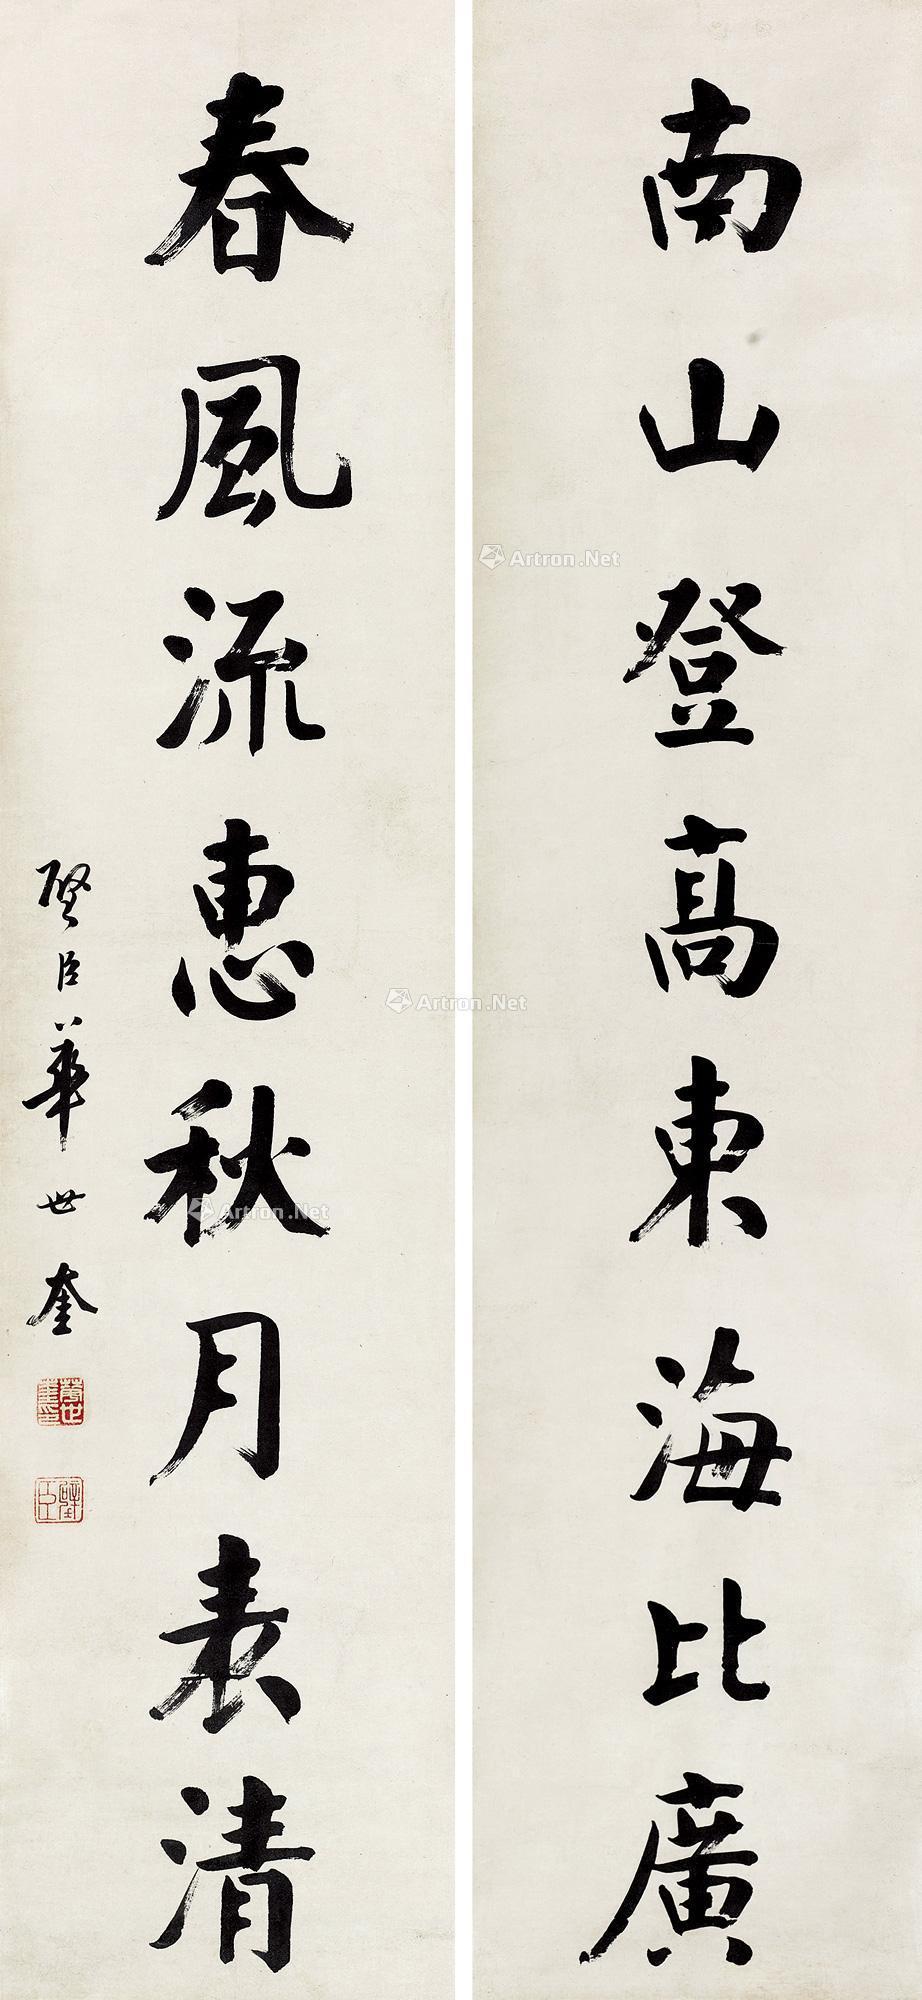 南山登高東海比廣
春風流惠秋月表清
壁臣華世奎
華世奎印
璧臣
Artron.Net
Artron.Net
Artron.Net